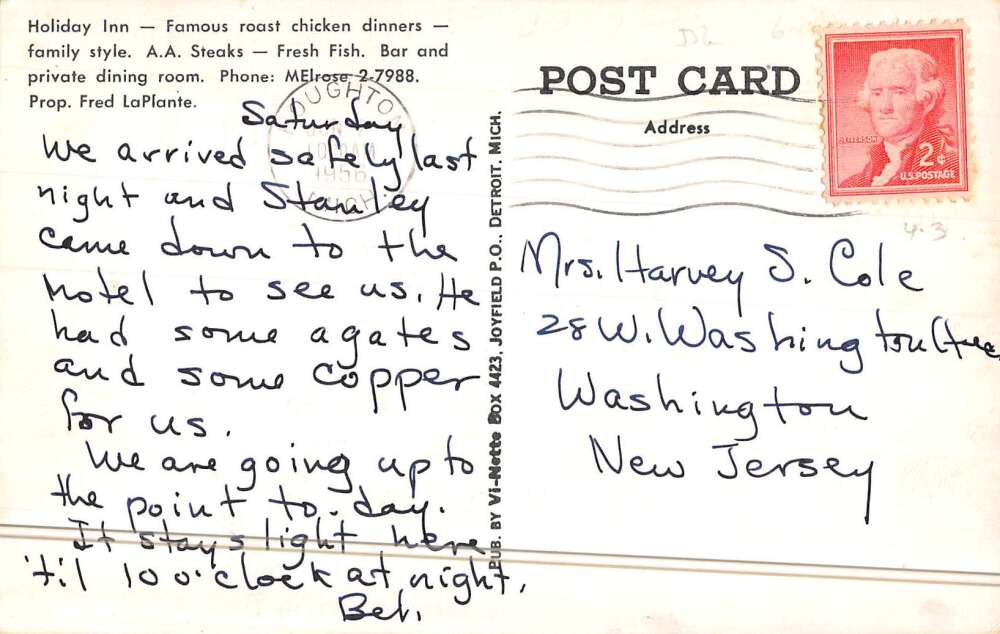 Holiday Inn — Famous roast chicken dinners —
family style. A.A. Steaks — Fresh Fish. Bar and
private dining room. Phone: MElrose 2-7988.
Prop. Fred LaPlante.
Saturday
We arrived safely last
night and Stanley
came down to the
motel to see us. He
had some agates
and some copper
for us.
We are going up to
the point to-day.
It stays light here
'til 10 o'clock at night.
Bet.
PUB. BY Vi-Nette BOX 4423, JOYFIELD P.O., DETROIT, MICH.
HOUGHTON
1956
MICH
POST CARD
Address
JEFFERSON
2¢
U.S. POSTAGE
4-3
Mrs. Harvey S. Cole
28 W. Washington
Washington
New Jersey